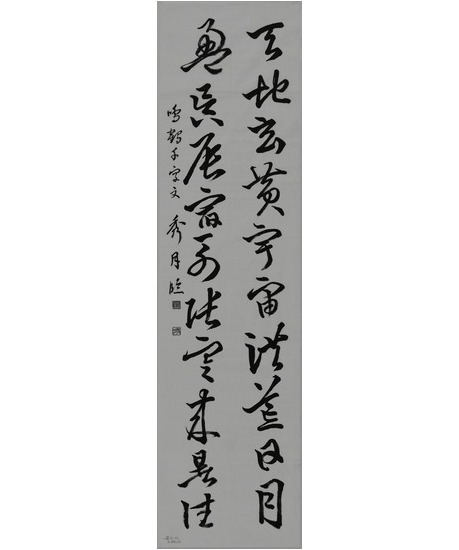 天地玄黄宇宙洪荒日月
盈昃辰宿列張寒来暑往
鳴鶴千字文 秀月臨